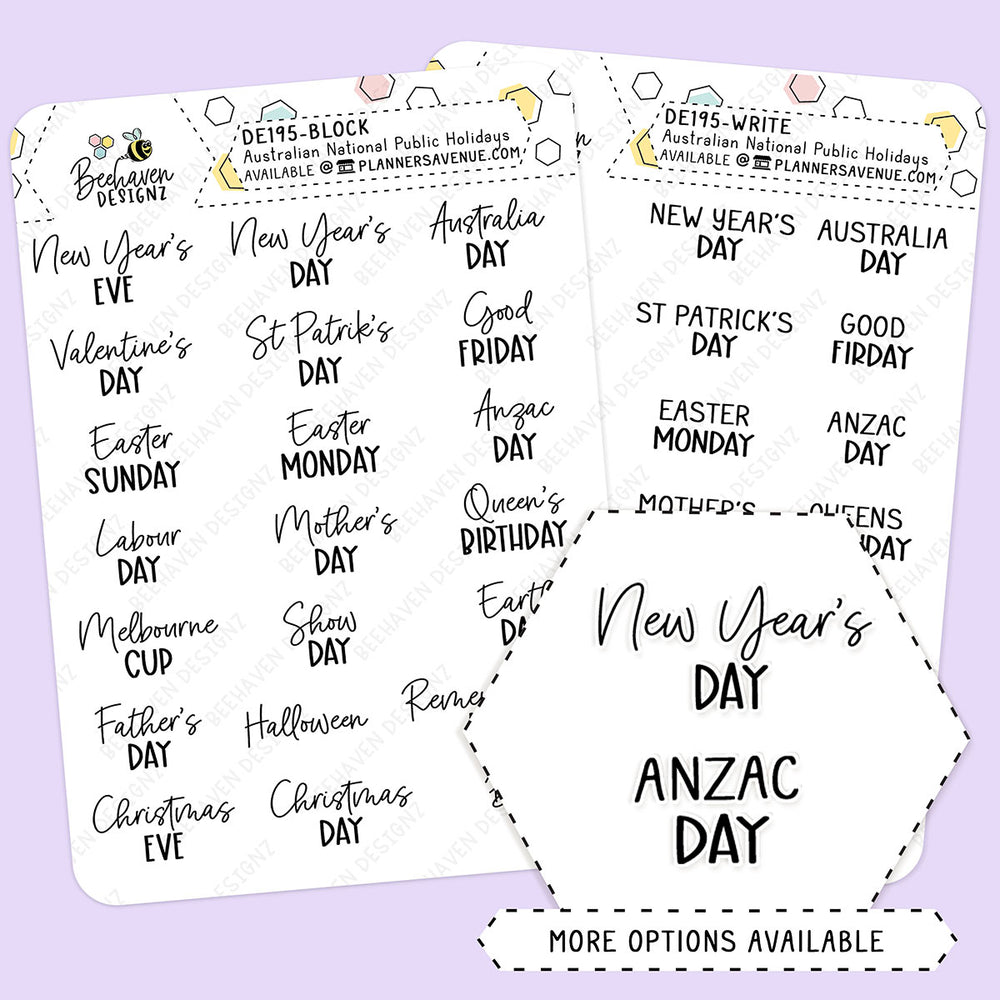 Beehaven
DESIGNZ
DE195-BLOCK
Australian National Public Holidays
AVAILABLE @ PLANNERSAVENUE.COM
New Year's
EVE
New Year's
DAY
Australia
DAY
Valentine's
DAY
St Patrik's
DAY
Good
FRIDAY
Easter
SUNDAY
Easter
MONDAY
Anzac
DAY
Labour
DAY
Mother's
DAY
Queen's
BIRTHDAY
Melbourne
CUP
Show
DAY
Father's
DAY
Halloween
Christmas
EVE
Christmas
DAY
DE195-WRITE
Australian National Public Holidays
AVAILABLE @ PLANNERSAVENUE.COM
NEW YEAR'S
DAY
AUSTRALIA
DAY
ST PATRICK'S
DAY
GOOD
FIRDAY
EASTER
MONDAY
ANZAC
DAY
MOTHER'S
New Year's
DAY
ANZAC
DAY
MORE OPTIONS AVAILABLE
BEEHAVEN DESIGNZ